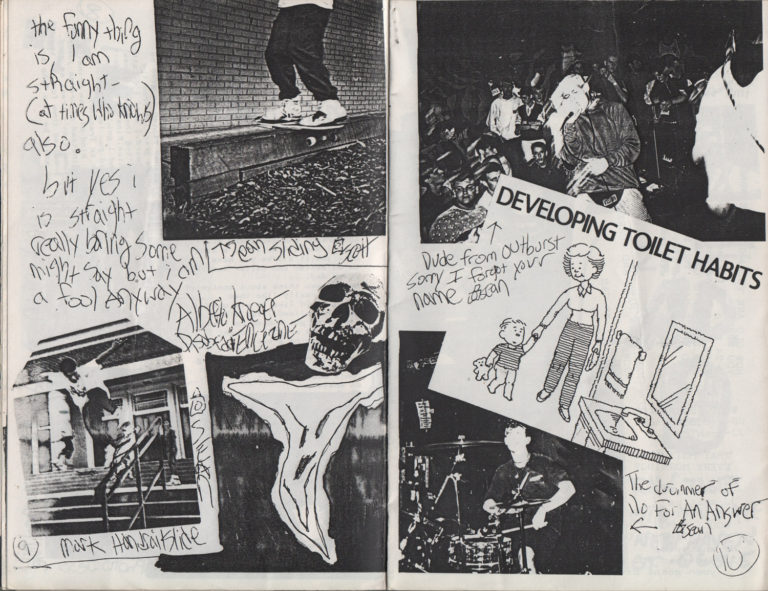 the funny thing
is, I am
straight-
(at times who knows)
also.
but yes i
is straight
really boring some
might say but i am
a fool anyway
Sean sliding
Albert
Mark Handrailslide
9
DEVELOPING TOILET HABITS
Dude from outburst
sorry I forgot your
name
sean
The drummer of
No For An Answer
sean
10